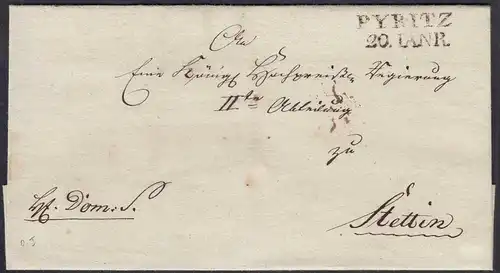 PYRITZ
20. IANR.
An
Eine Königl Hochpreißl. Regierung
IIte Abtheilung
zu
Stettin
Dom. S.